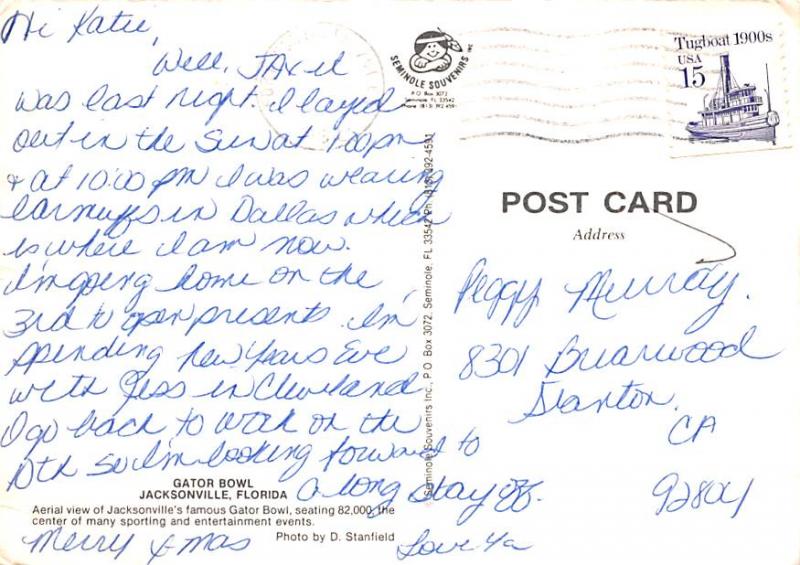 Hi Katie,
Well, JAX it
was last night. I layed
out in the Sun at 1:00 pm
& at 10:00 PM I was wearing
earmuffs in Dallas which
is where I am now.
I'm going home on the
3rd to open presents. I'm
spending New Years Eve
with Jess in Cleveland
I go back to work on the
10th so I'm looking forward to
a long stay off.
Merry X-mas
Love Ya
GATOR BOWL
JACKSONVILLE, FLORIDA
Aerial view of Jacksonville's famous Gator Bowl, seating 82,000, the
center of many sporting and entertainment events.
Photo by D. Stanfield
SEMINOLE SOUVENIRS INC.
P O Box 3072
Seminole, FL 33542
Phone (813) 392 459
Seminole Souvenirs Inc., P.O. Box 3072, Seminole, FL 33542 Ph. (813) 392-4591
Tugboat 1900s
USA
15
POST CARD
Address
Peggy Murray.
8301 Briarwood
Stanton,
CA
92804